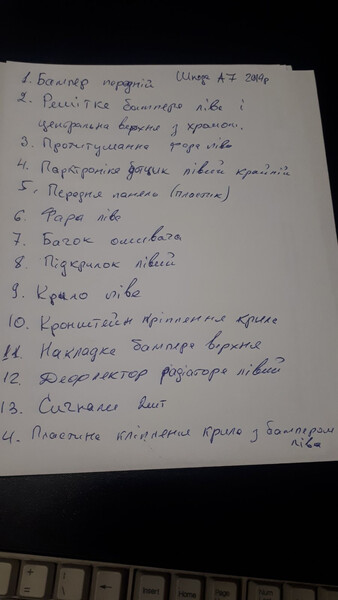 1. Бампер передній Шкода А7 2019р
2. Решітка бампера ліва і
центральна верхня з хромом.
3. Протитуманна фара ліва
4. Парктроніка датчик лівий крайній
5. Передня панель (пластік)
6. Фара ліва
7. Бачок омивача
8. Підкрилок лівий
9. Крило ліве
10. Кронштейн кріплення крила
11. Накладка бампера верхня
12. Дефлектор радіатора лівий
13. Сигнали 2шт
4. Пластина кліплення крила з бампером
ліва
Page
Page
Num